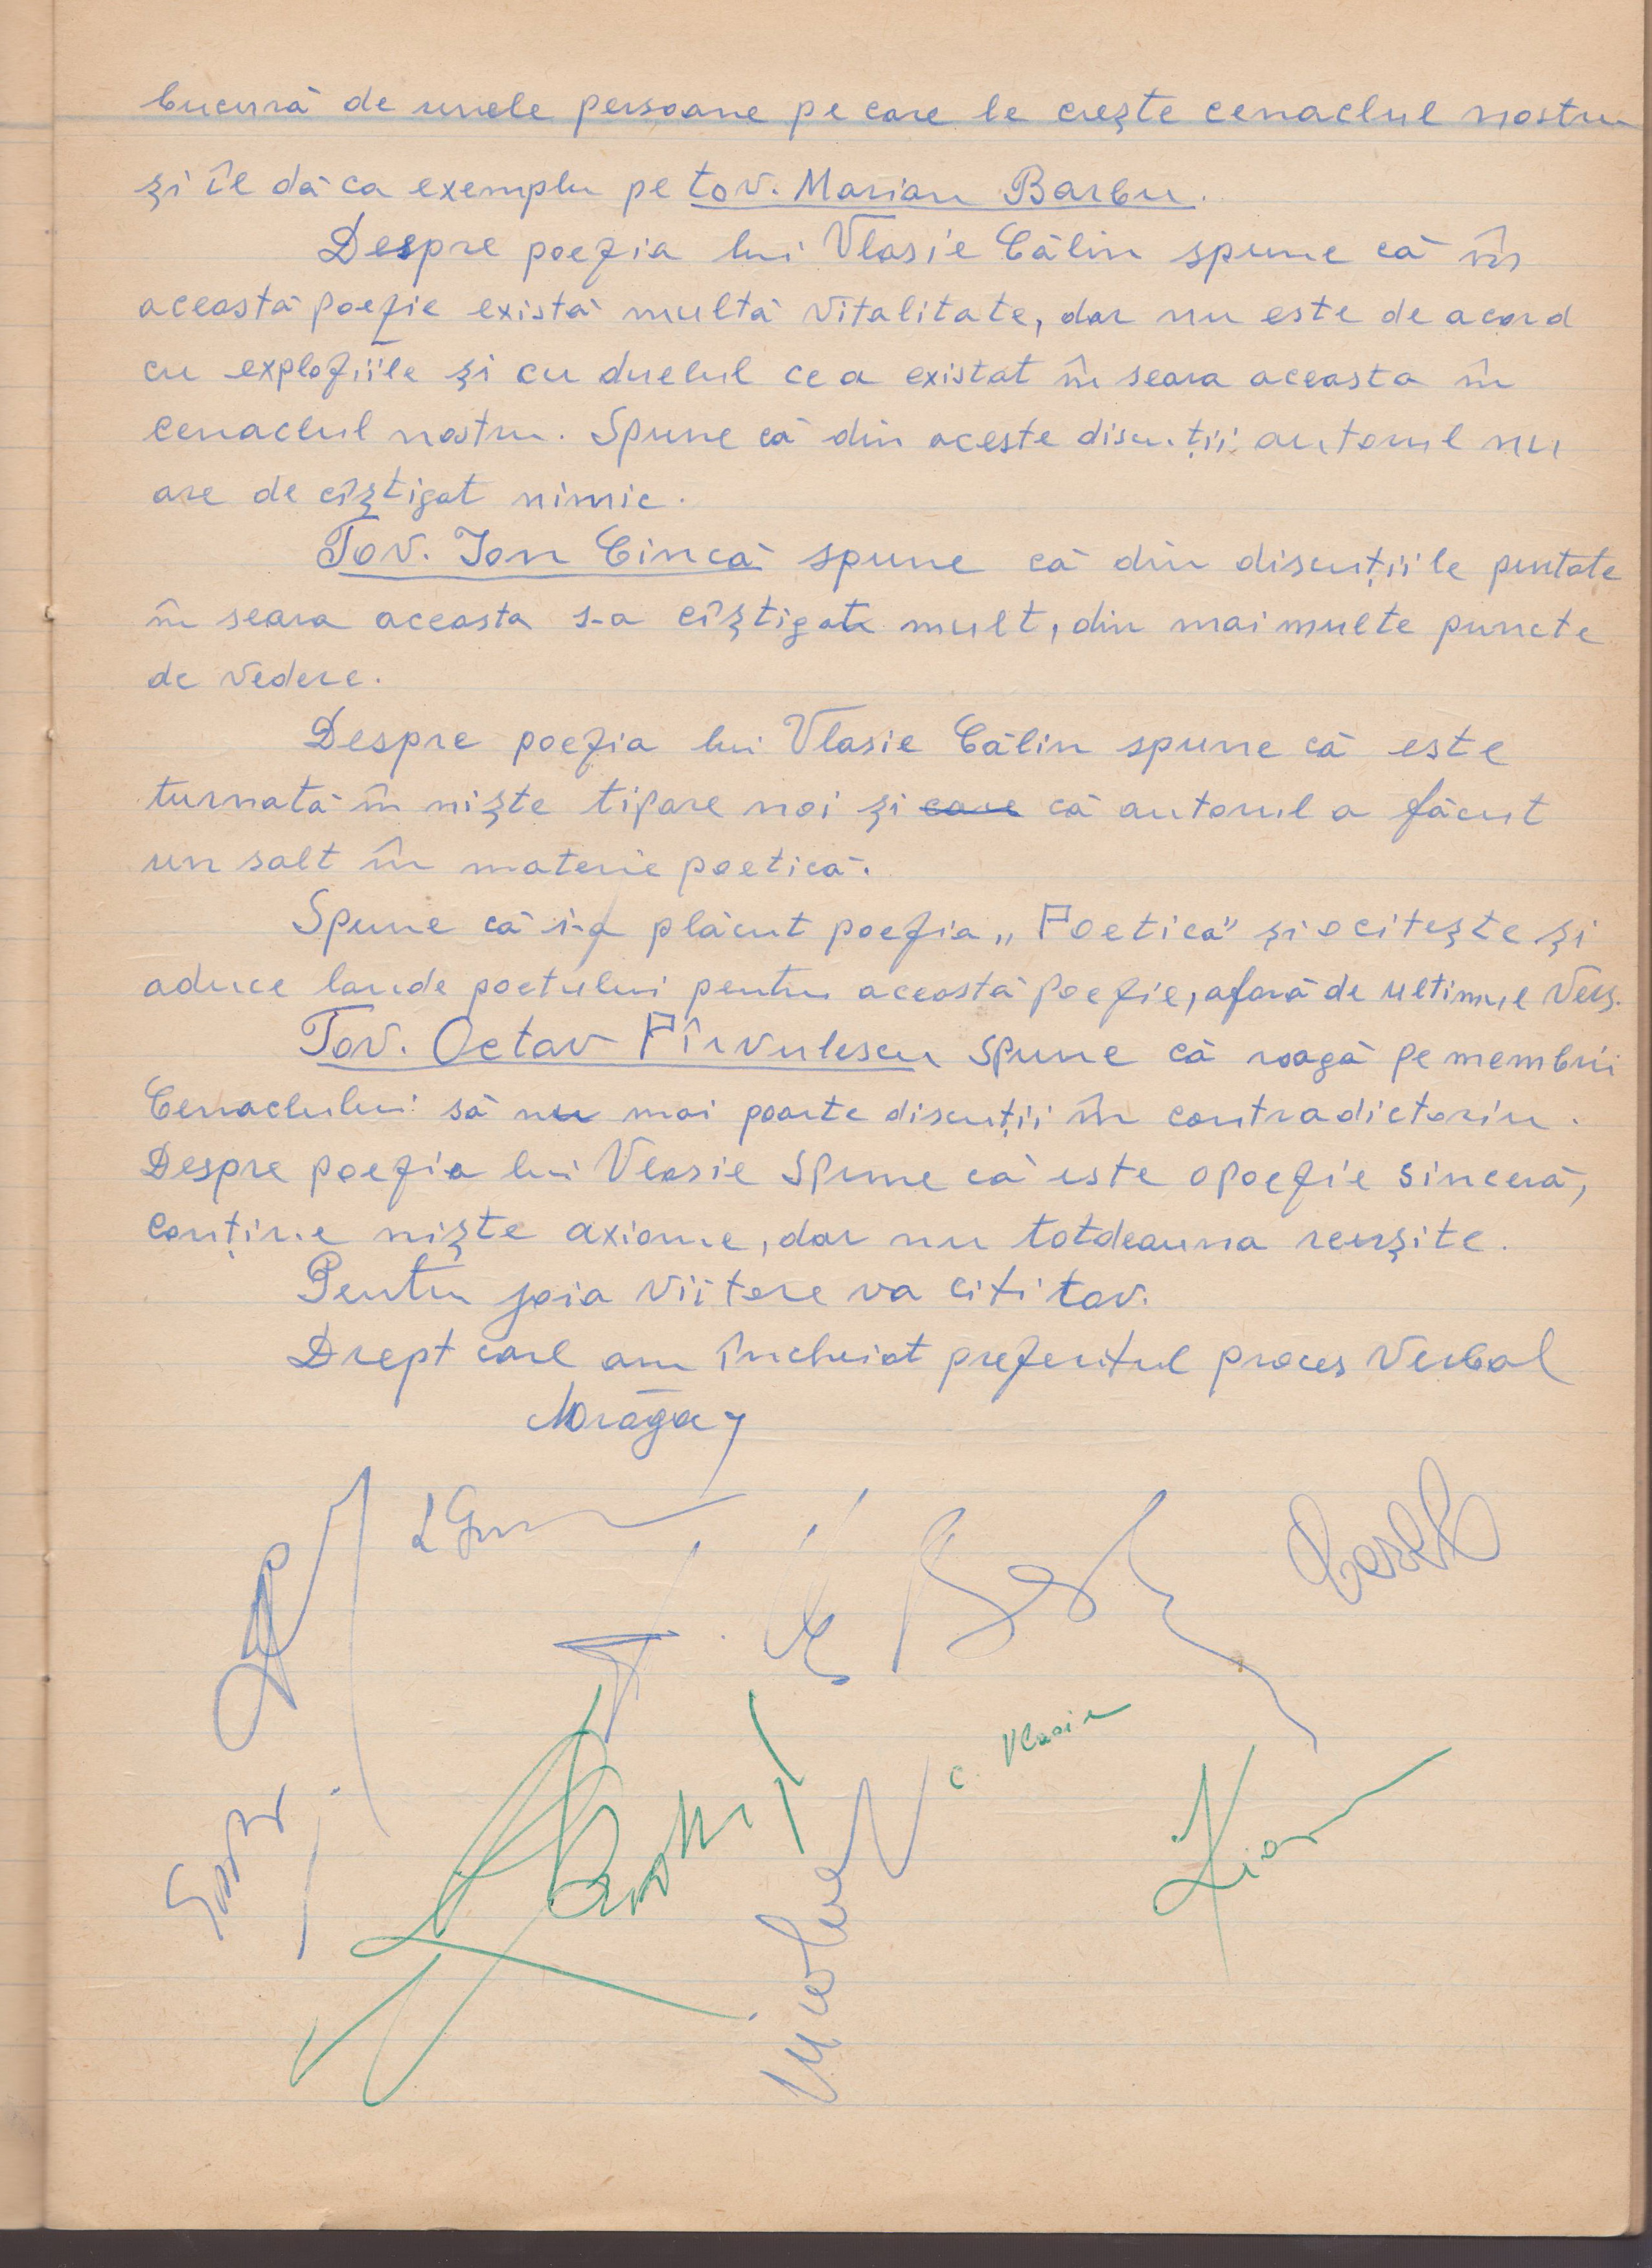 bucură de unele persoane pe care le creşte cenaclul nostru
şi îl dă ca exemplu pe tov. Marian Barbu.
Despre poezia lui Vlasie Călin spune că în
această poezie există multă vitalitate, dar nu este de acord
cu exploziile şi cu duelul ce a existat în seara aceasta în
cenaclul nostru. Spune că din aceste discuţii autorul nu
are de cîştigat nimic.
Tov. Ion Cincă spune că din discuţiile purtate
în seara aceasta s-a cîştigat mult, din mai multe puncte
de vedere.
Despre poezia lui Vlasie Călin spune că este
turnată în nişte tipare noi şi care că autorul a făcut
un salt în materie poetică.
Spune că i-a plăcut poezia „Poetică" şi o citeşte şi
aduce laude poetului pentru această poezie, afară de ultimul vers.
Tov. Octav Pîrvulescu spune că roagă pe membrii
Cenaclului să nu mai poarte discuţii în contradictoriu.
Despre poezia lui Vlasie spune că este o poezie sinceră,
conţine nişte axiome, dar nu totdeauna reuşite.
Pentru joia viitore va citi tov.
Drept care am încheiat prezentul proces verbal
C. Vlasie